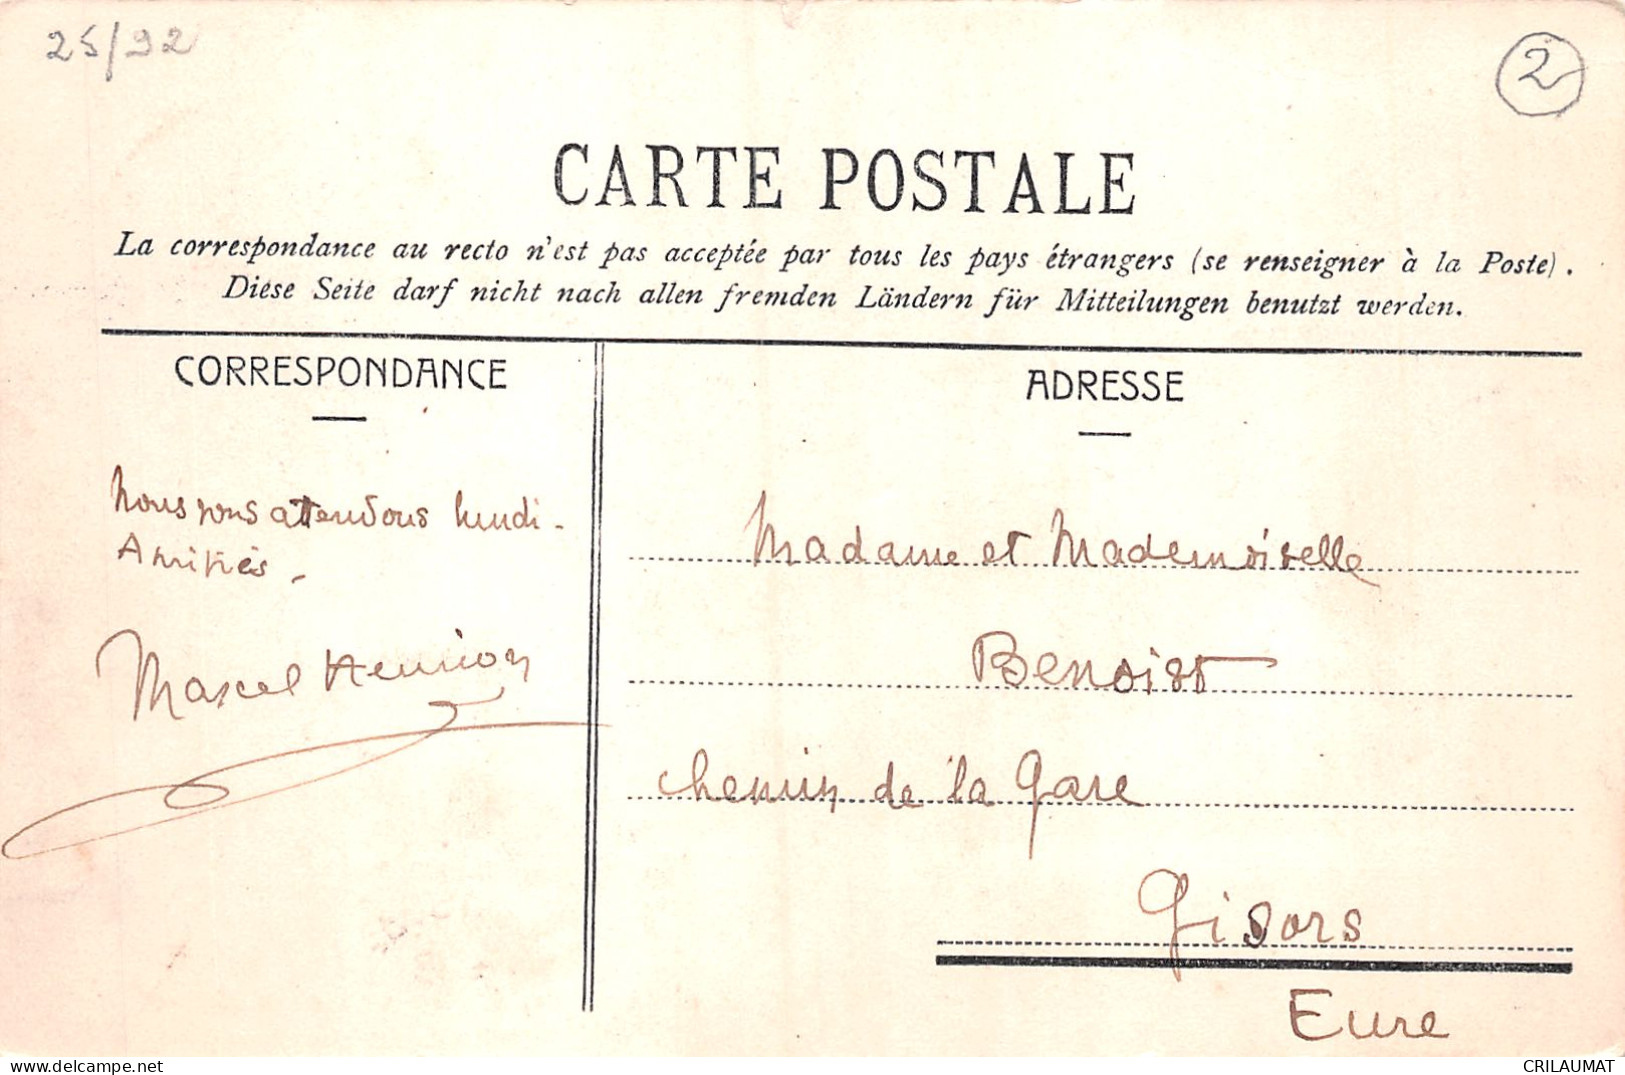 25/92
2
CARTE POSTALE
La correspondance au recto n'est pas acceptée par tous les pays étrangers (se renseigner à la Poste).
Diese Seite darf nicht nach allen fremden Ländern für Mitteilungen benutzt werden.
CORRESPONDANCE
Nous vous attendons lundi -
Amitiés -
Marcel Henrion
ADRESSE
Madame et Mademoiselle
Benoist
Chemin de la Gare
Gisors
Eure
CRILAUMAT